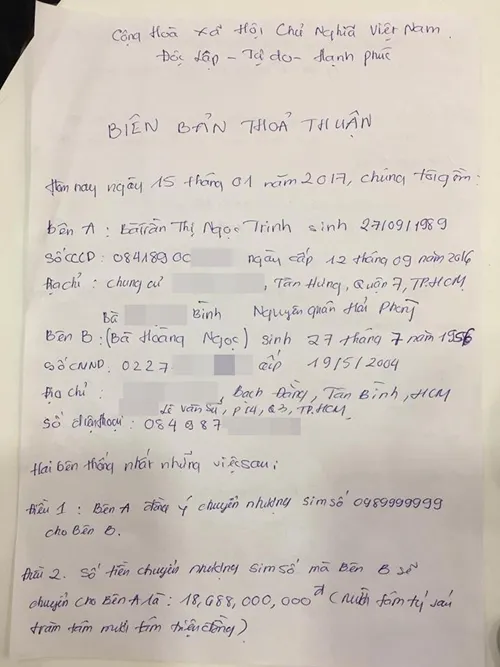 Cộng Hoà Xã Hội Chủ Nghĩa Việt Nam.
Độc Lập - Tự do - Hạnh phúc
BIÊN BẢN THOẢ THUẬN
Hôm nay ngày 15 tháng 01 năm 2017, chúng tôi gồm:
Bên A : Bà Trần Thị Ngọc Trinh sinh 27/09/1989
Số CCCD: 084189 00 ngày cấp 12 tháng 09 năm 2016
Địa chỉ : chung cư , Tân Hưng, Quận 7, TP.HCM
Bà Bình Nguyên quán Hải Phòng
Bên B : (Bà Hoàng Ngọc) sinh 27 tháng 7 năm 1956
số CMND: 0227 cấp 19/5/2004
Địa chỉ : Bạch Đằng, Tân Bình, HCM
Lê Văn Sỹ, P14, Q3, TP.HCM
Số điện thoại : 084 987
Hai bên thống nhất những việc sau:
Điều 1 : Bên A đồng ý chuyển nhượng sim số 0989999999
cho Bên B.
Điều 2. Số tiền chuyển nhượng sim số mà Bên B sẽ
chuyển cho Bên A là : 18,688,000,000đ (Mười tám tỷ sáu
trăm tám mươi tám triệu đồng)